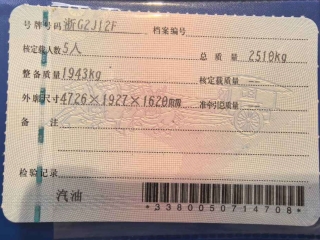 号牌号码 浙G2J12F 档案编号
核定载人数 5人 总质量 2510kg
整备质量 1943kg 核定载质量
外廓尺寸 4726×1927×1620mm 准牵引总质量
备注
检验记录
汽油
*3380050714708*